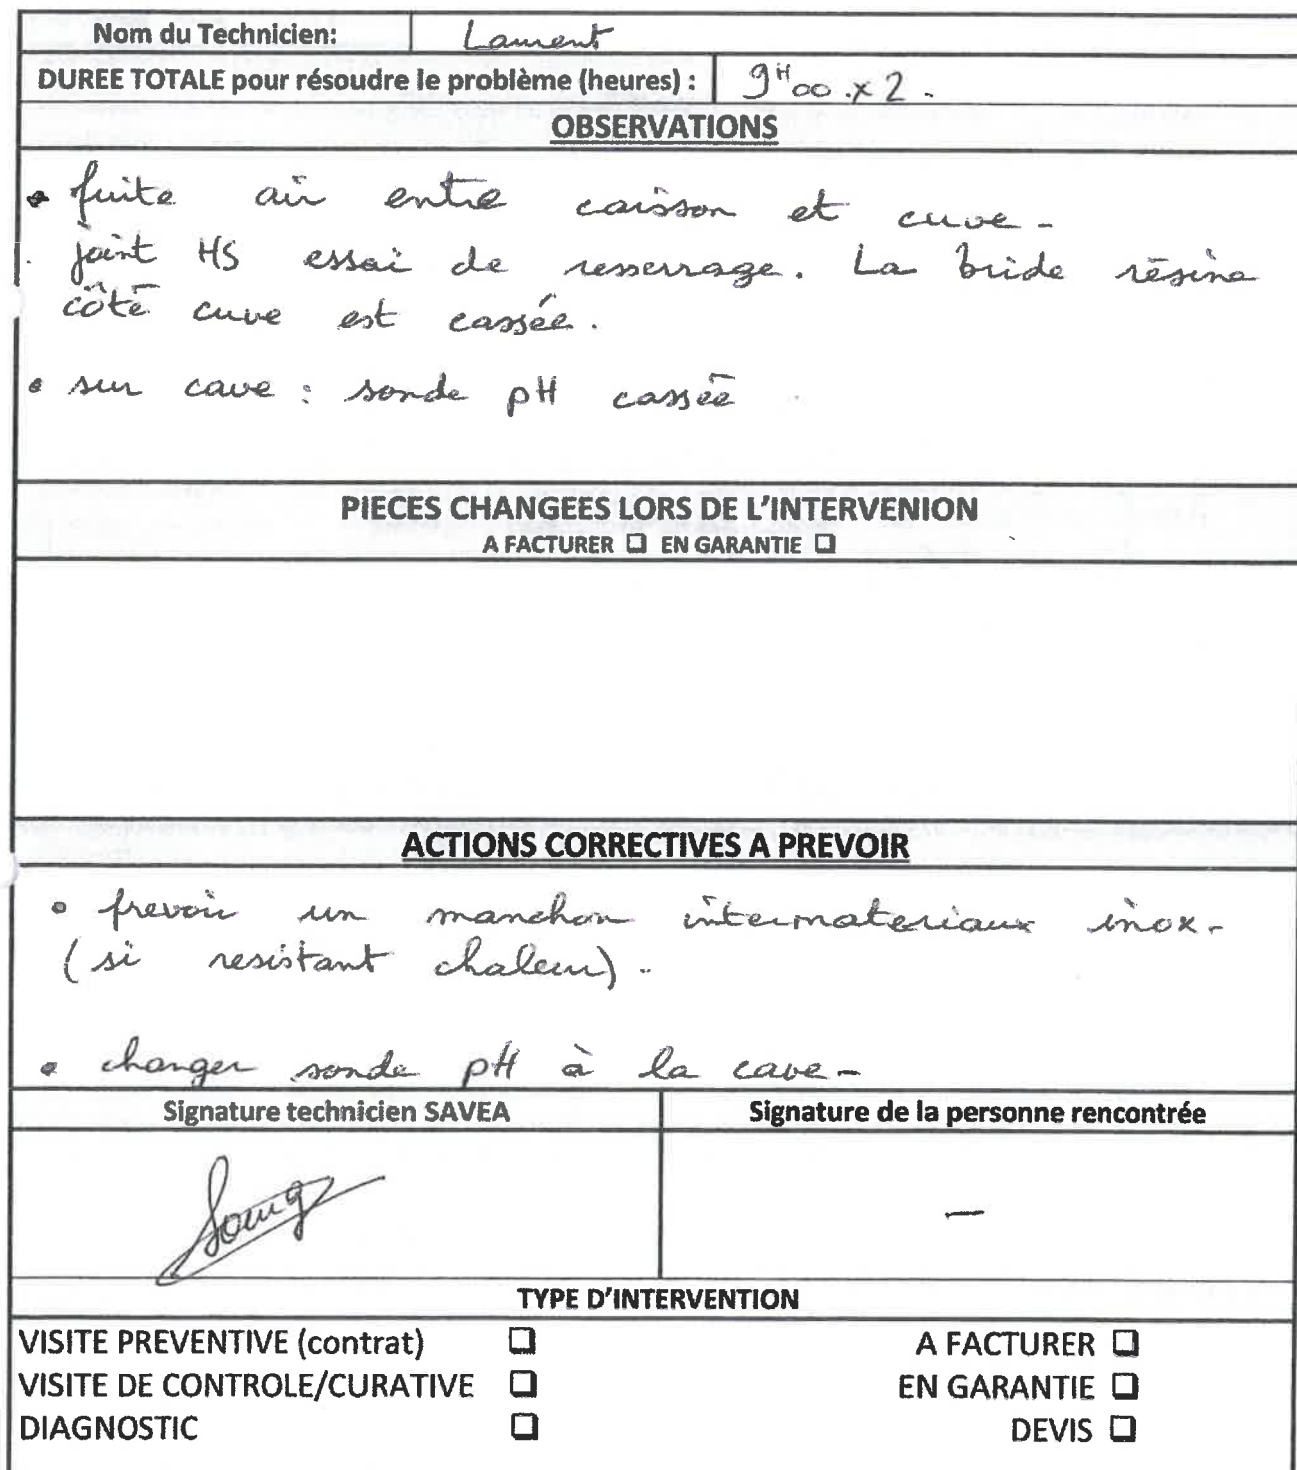 Nom du Technicien: Laurent
DUREE TOTALE pour résoudre le problème (heures) : 9H00 x 2.
OBSERVATIONS
• fuite air entre caisson et cuve -
. joint HS essai de resserrage. La bride résine
côté cuve est cassée.
• sur cave : sonde pH cassée
PIECES CHANGEES LORS DE L'INTERVENION
A FACTURER ❑ EN GARANTIE ❑
ACTIONS CORRECTIVES A PREVOIR
• prevoir un manchon intermateriaux inox -
(si resistant chaleur) -
• changer sonde pH à la cave -
Signature technicien SAVEA Signature de la personne rencontrée
—
TYPE D'INTERVENTION
VISITE PREVENTIVE (contrat) ❑ A FACTURER ❑
VISITE DE CONTROLE/CURATIVE ❑ EN GARANTIE ❑
DIAGNOSTIC ❑ DEVIS ❑